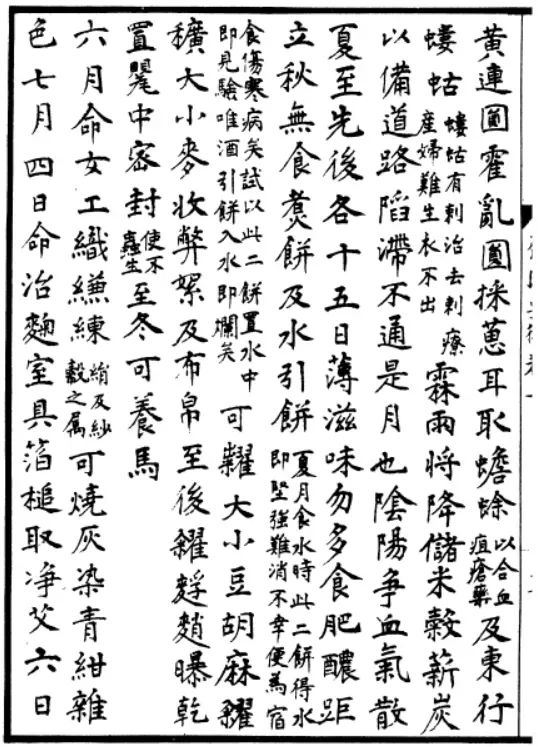 黄連圎霍亂圎採葱耳取蟾蜍以合血疽瘡藥及東行
螻蛄螻蛄有刺治去刺療產婦難生衣不出霖雨將降儲米穀薪炭
以備道路陷滯不通是月也陰陽争血氣散
夏至先後各十五日薄滋味勿多食肥醲距
立秋無食煑餅及水引餅夏月食水時此二餅得水即堅強難消不幸便為宿
食傷寒病矣試以此二餅置水中即見驗唯酒引餅入水即爛矣可糶大小豆胡麻糴
穬大小麥收弊絮及布帛至後糴麩䴬曝乾
置甖中密封使不蟲生至冬可養馬
六月命女工織縑練絹及紗縠之属可燒灰染青紺雜
色七月四日命治麴室具箔槌取净艾六日